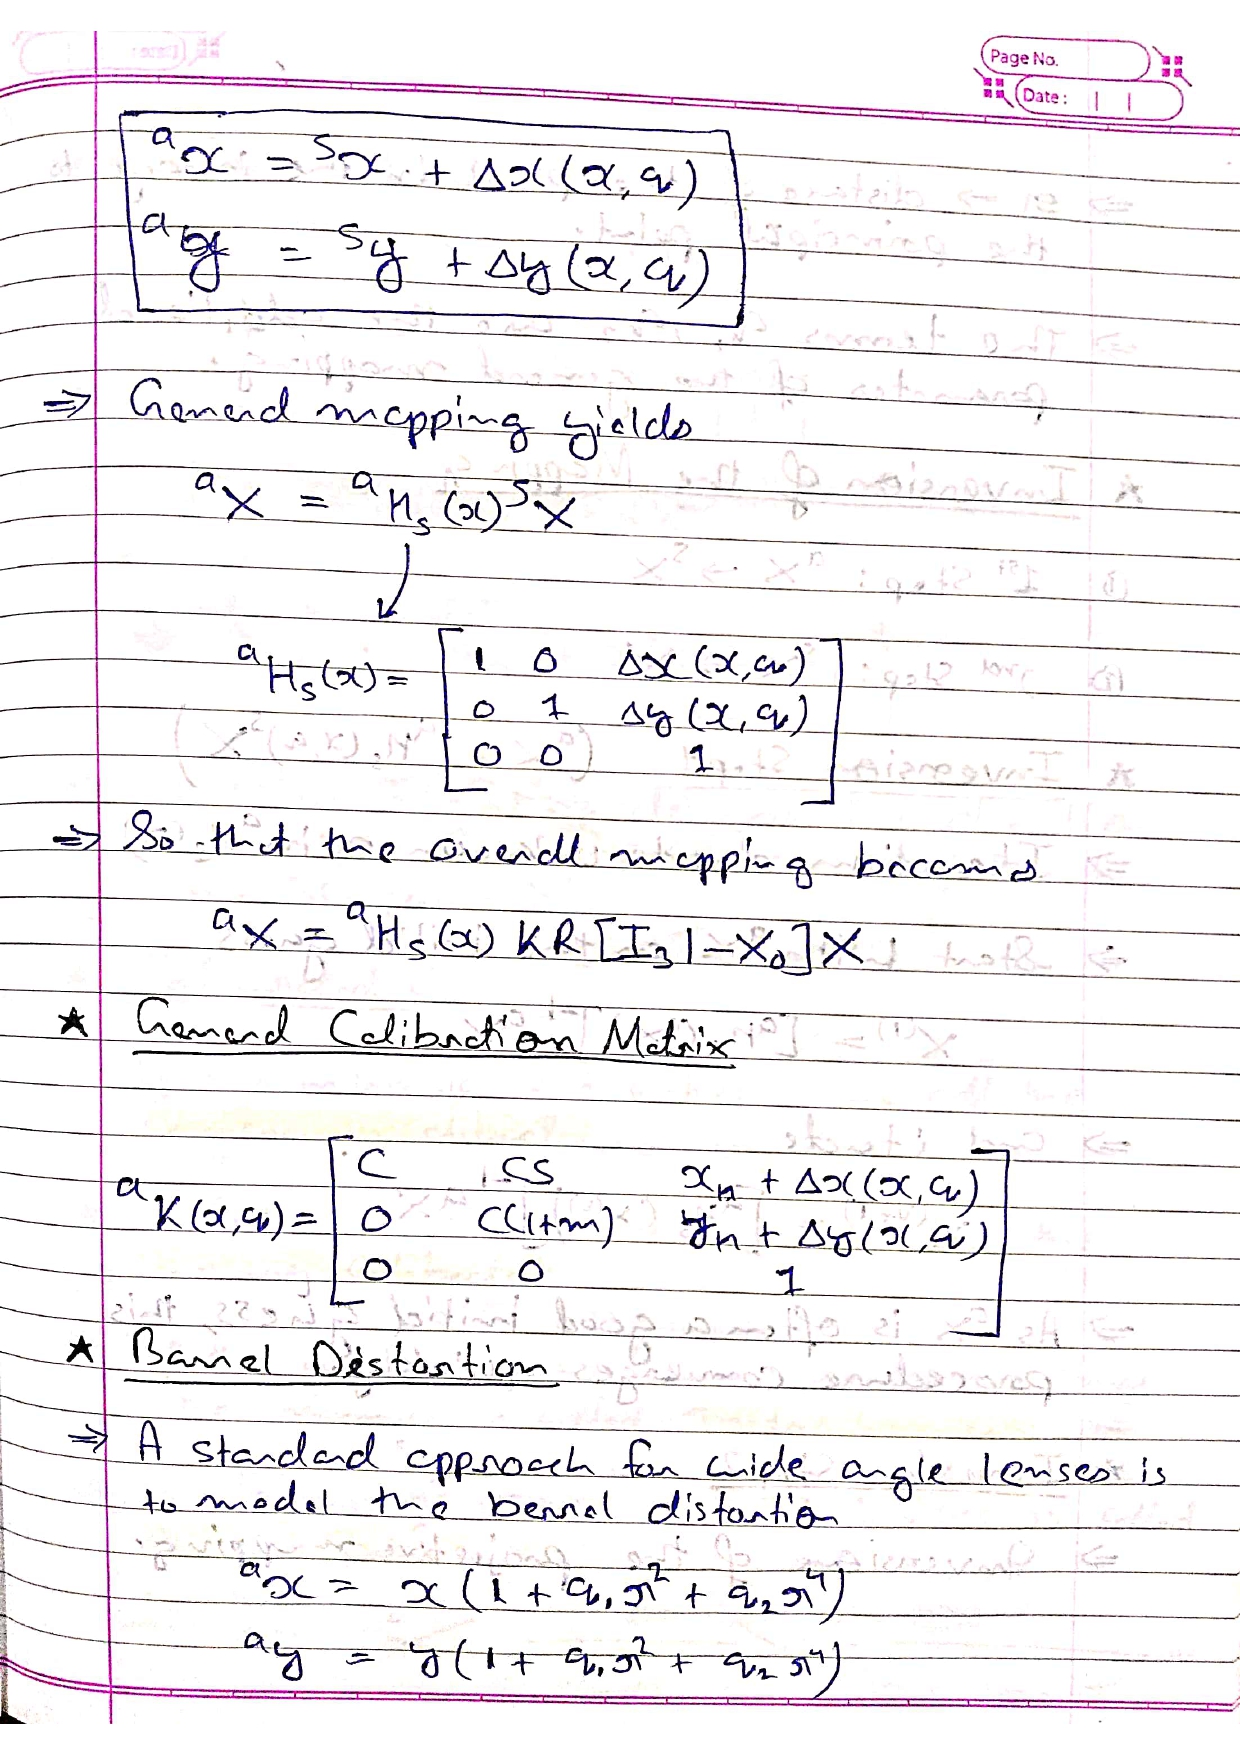 Page No.
Date: | |
ᵃx = ˢx + Δx(x, q)
ᵃy = ˢy + Δy(x, q)
⇒ General mapping yields
ᵃX = ᵃHₛ(x) ˢX
ᵃHₛ(x) = [ 1 0 Δx(x, q)
0 1 Δy(x, q)
0 0 1 ]
⇒ So that the overall mapping becomes
ᵃX = ᵃHₛ(x) KR[I₃|-X₀]X
★ General Calibration Matrix
ᵃK(x, q) = [ C CS x_H + Δx(x, q)
0 C(1+m) y_H + Δy(x, q)
0 0 1 ]
★ Barrel Distortion
⇒ A standard approach for wide angle lenses is
to model the barrel distortion
ᵃx = x(1 + q₁r² + q₂r⁴)
ᵃy = y(1 + q₁r² + q₂r⁴)